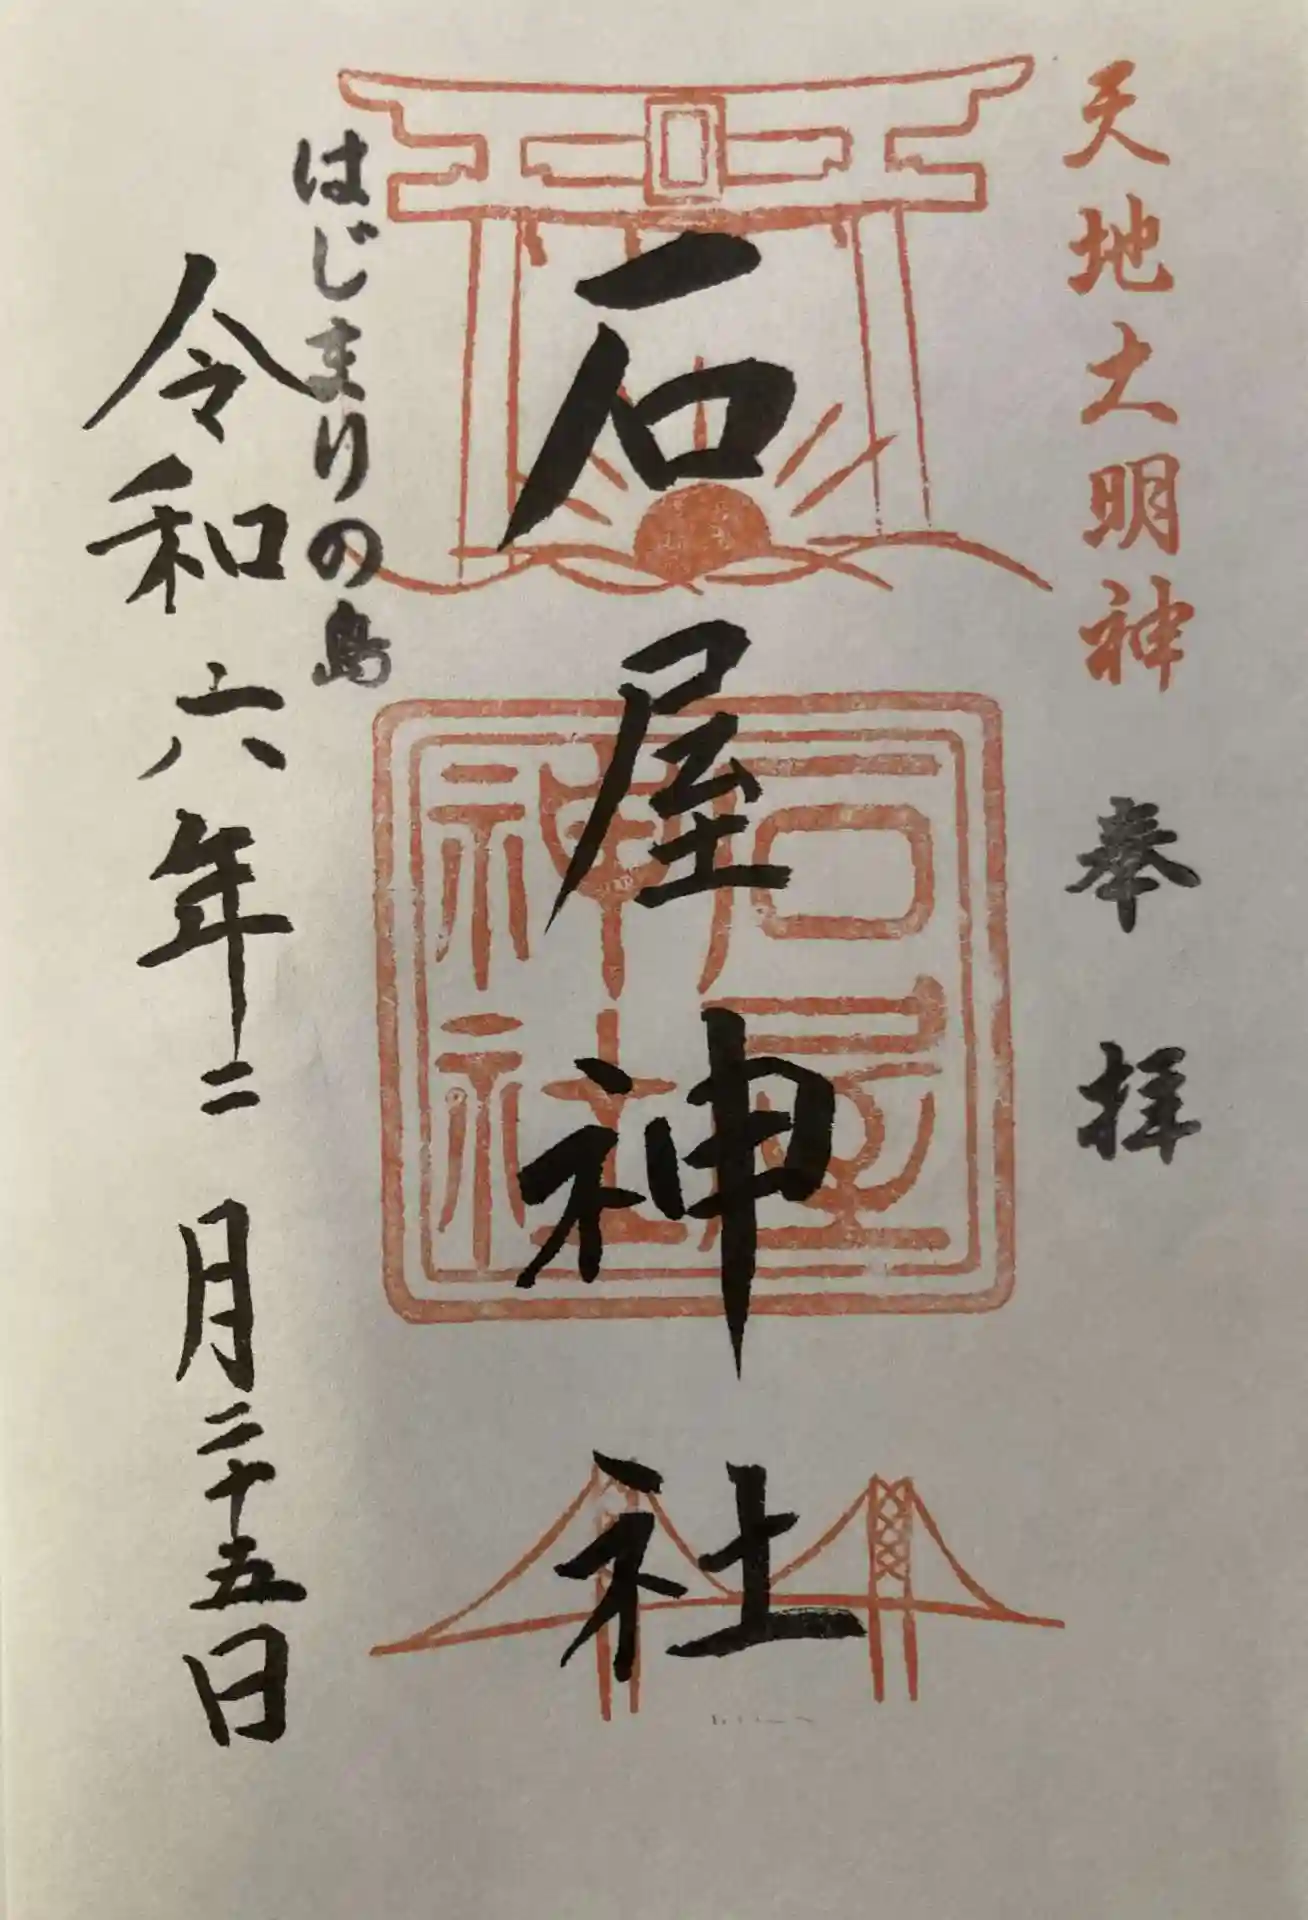 天地大明神
奉拝
石屋神社
石屋神社
はじまりの島
令和六年二月二十五日